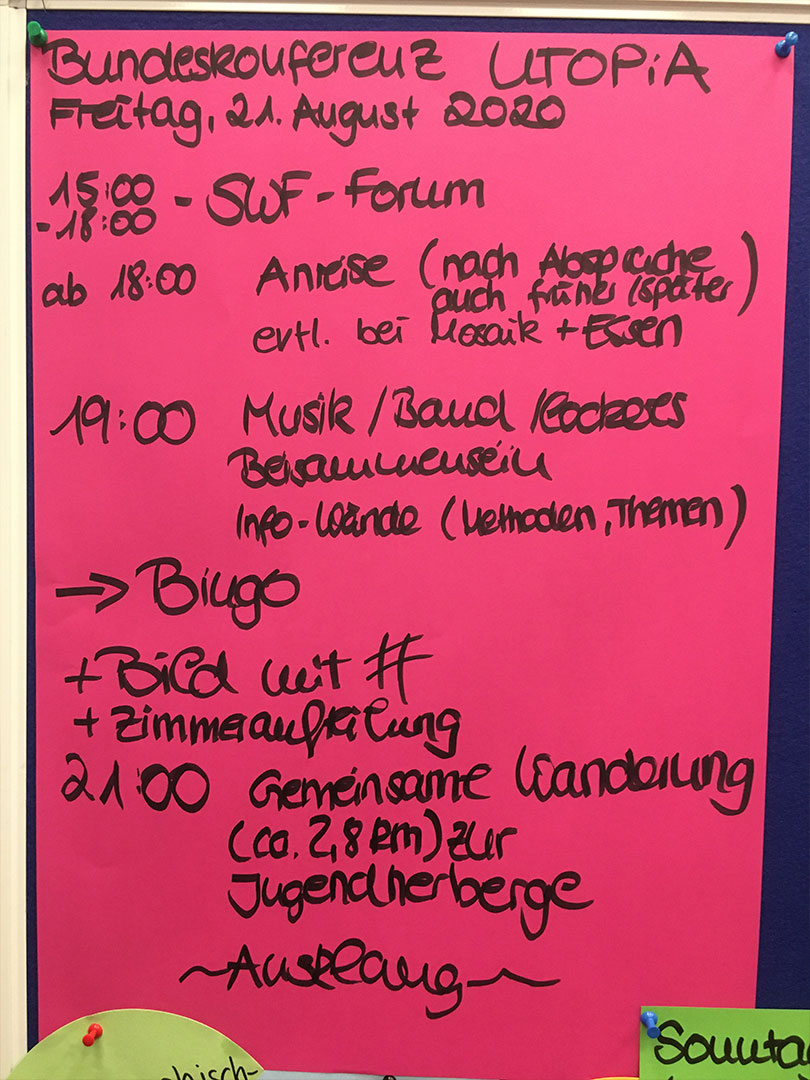 Bundeskonferenz UTOPiA
Freitag, 21. August 2020
15:00 - SWF-Forum
-18:00
ab 18:00 Anreise (nach Absprache
auch früher/später)
evtl. bei Mosaik + Essen
19:00 Musik/Band/lockeres
Beisammensein
Info-Wände (Methoden, Themen)
→ Bingo
+ Bild mit #
+ Zimmeraufteilung
21:00 Gemeinsame Wanderung
(ca. 2,8 km) zur
Jugendherberge
~Ausklang~
Sonnta